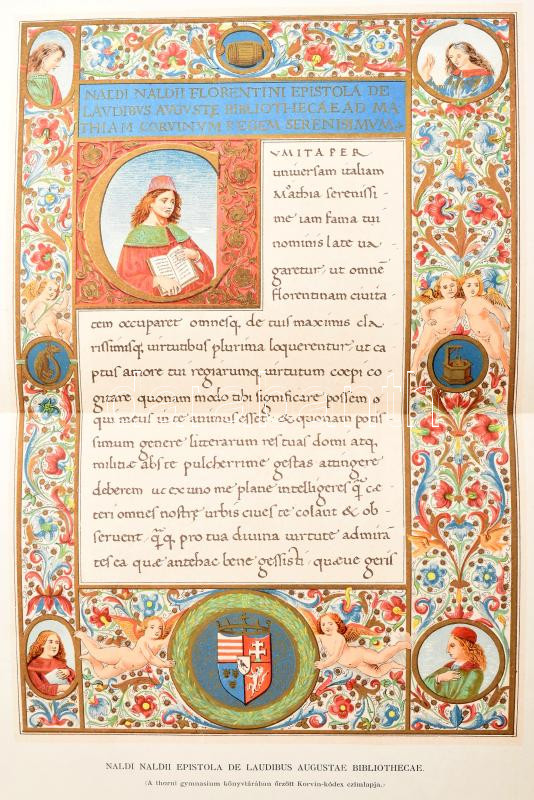 NALDI NALDII FLORENTINI EPISTOLA DE
LAVDIBVS AVGVSTE BIBLIOTHECAE AD MA
THIAM CORVINVM REGEM SERENISIMVM
VM ITA PER
universam italiam
Mathia serenissi-
me iam fama tui
nominis late va
garetur, ut omnē
florentinam civita-
tem occuparet omnesq, de tuis maximis cla,
rissimisq, virtutibus plurima loquerentur, ut ca
ptus amore tui regiarumq, virtutum coepi co
gitare quonam modo tibi significare possem
qui meus in te animus esset, & quonam potis
simum genere litterarum res tuas domi atq,
militiae abs te pulcherrime gestas attingere
deberem ut ex uno me plane intelligeres cae
teri omnes nostrę urbis cives te colant & ob-
servent, pro tua divina virtute admira
tes ea quae antehac bene gessisti, quaeve geris
NALDI NALDII EPISTOLA DE LAUDIBUS AUGUSTAE BIBLIOTHECAE.
(A thorni gymnasium könyvtárában őrzött Korvin-kódex czímlapja.)